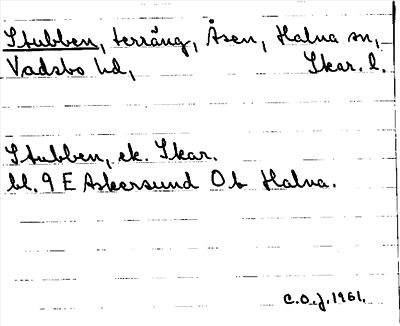 Stubben, terräng, Åsen, Halna sn,
Vadsbo hd, Skar. l.
Stubben, ek. Skar.
bl. 9 E Askersund O b Halna.
C.O.J. 1961.